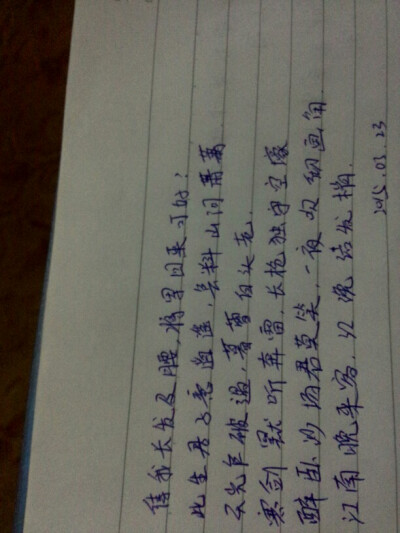 待我长发及腰,将军归来可好?
此生君子意逍遥,怎料山河萧萧
天光乍破遇,暮雪白头老.
寒剑默听奔雷,长枪独守空壕
醉卧沙场君莫笑,一夜吹彻画角
江南晚来客,红绳结发梢.
2015.03.23